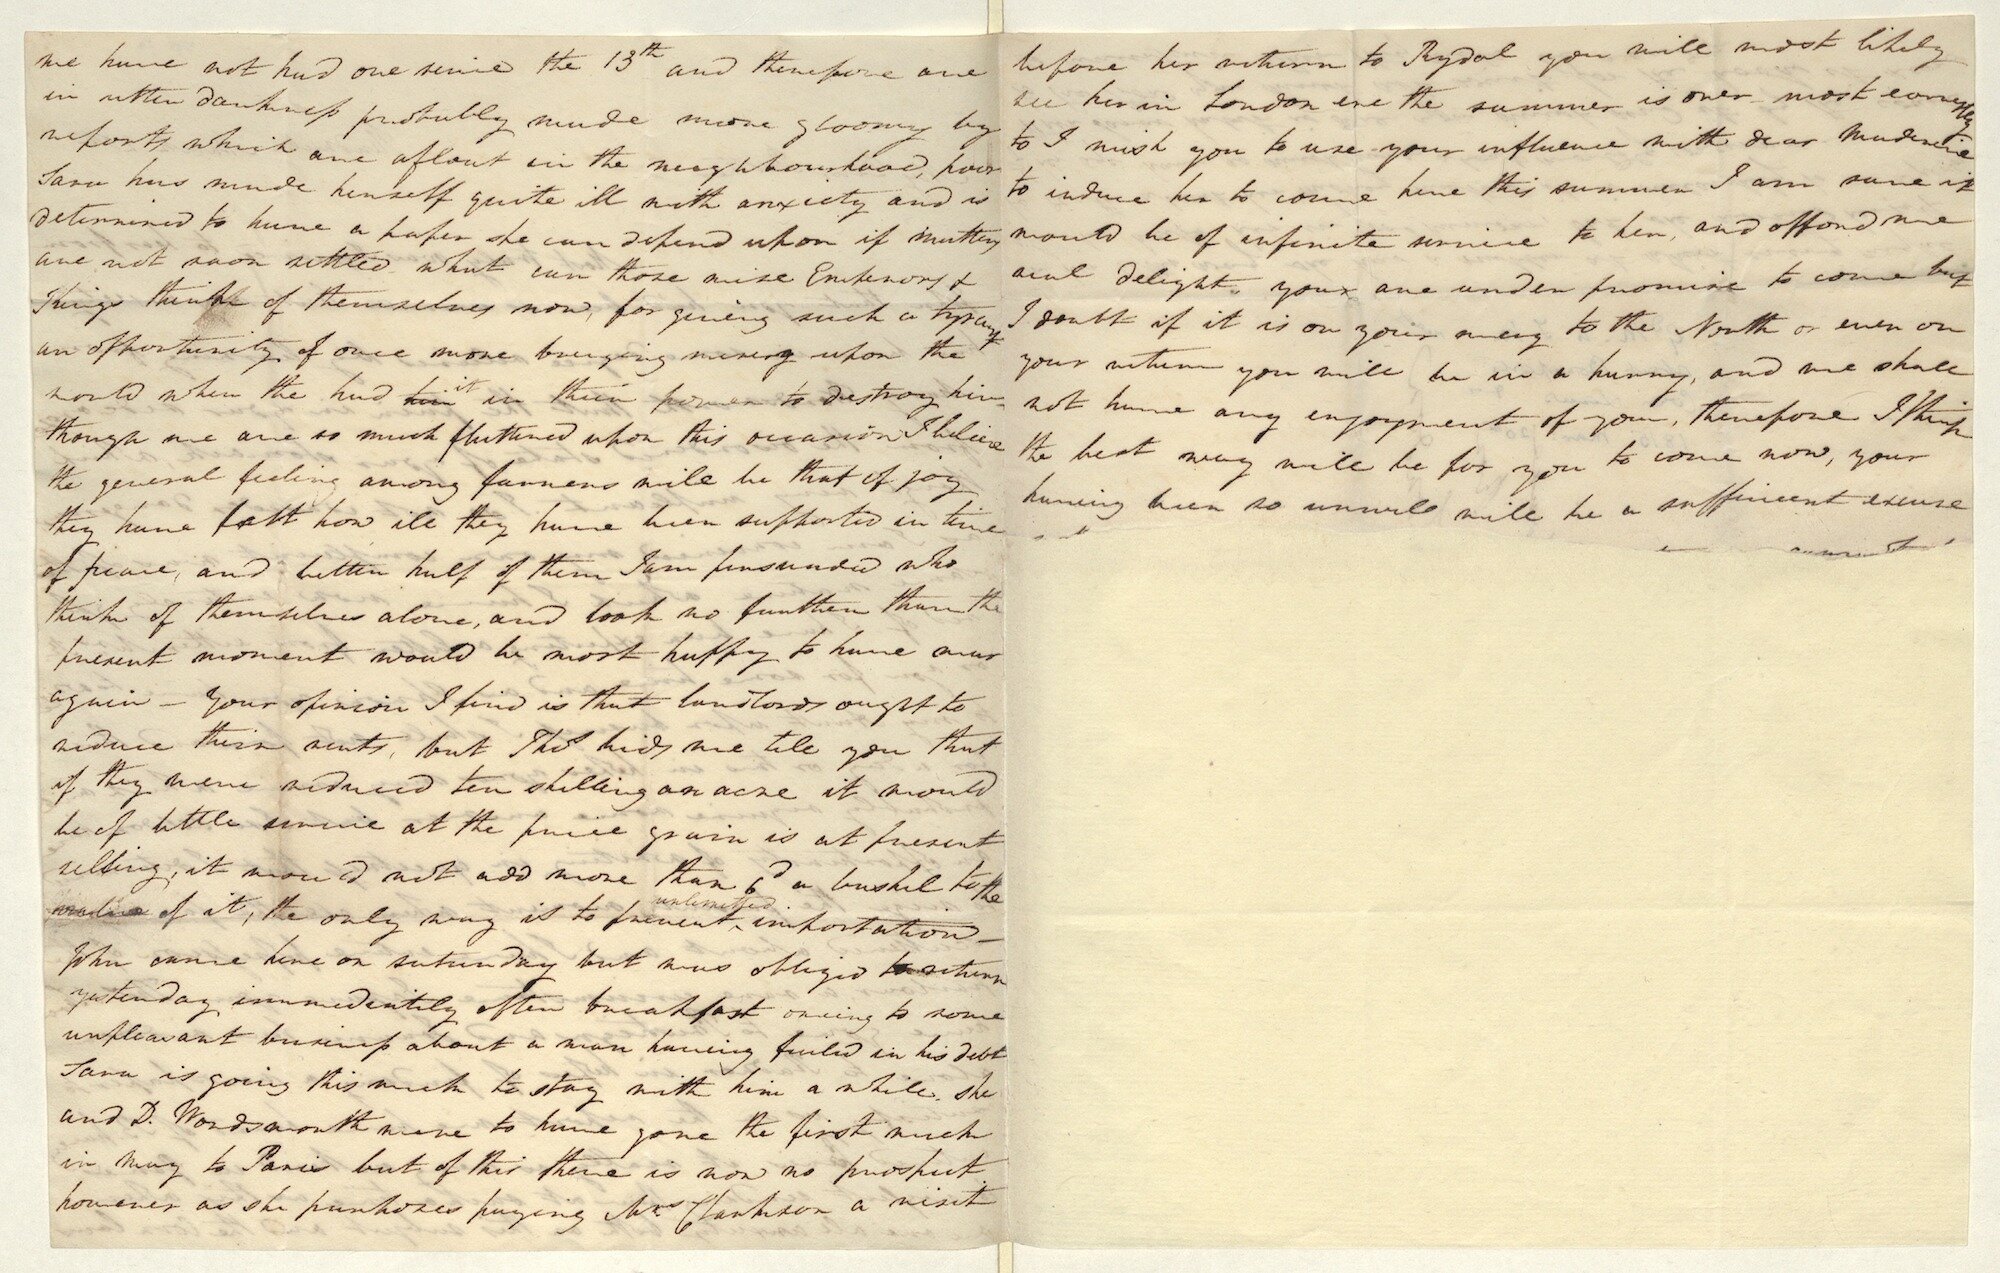 we have not had one since the 13th and therefore are
in utter darkness probably made more gloomy by
reports which are afloat in the neighbourhood, poor
Sara has made herself quite ill with anxiety and is
determined to have a paper she can depend upon if matters
are not soon settled what can those wise Emperors &
Kings think of themselves now, for giving such a tyrant
an opportunity of once more bringing misery upon the
world when the had him it in their power to destroy him
though we are so much fluttered upon this occasion I believe
the general feeling among farmers will be that of joy
they have felt how ill they have been supported in time
of peace, and better half of them I am persuaded who
think of themselves alone, and look no further than the
present moment would be most happy to have war
again — Your opinion I find is that landlords ought to
reduce their rents, but Thos bids me tell you that
if they were reduced ten shilling an acre it would
be of little service at the price grain is at present
selling, it would not add more than 6d a bushel to the
value of it, the only way is to prevent unlimitted importation —
John came here on saturday but was obliged to return
yesterday immediately after breakfast owing to some
unpleasant business about a man having failed in his debt
Sara is going this week to stay with him a while. she
and D. Wordsworth were to have gone the first week
in May to Paris but of this there is now no prospect
however as she purposes paying Mrs Clarkson a visit
before her return to Rydal you will most likely
see her in London ere the summer is over most earnestly
to I wish you to use your influence with dear
to induce her to come here this summer I am sure it
would be of infinite service to her, and afford me
real delight. your are under promise to come but
I doubt if it is on your way to the North or even on
your return you will be in a hurry, and we shall
not have any enjoyment of you, therefore I think
the best way will be for you to come now, your
having been so unwell will be a sufficient excuse